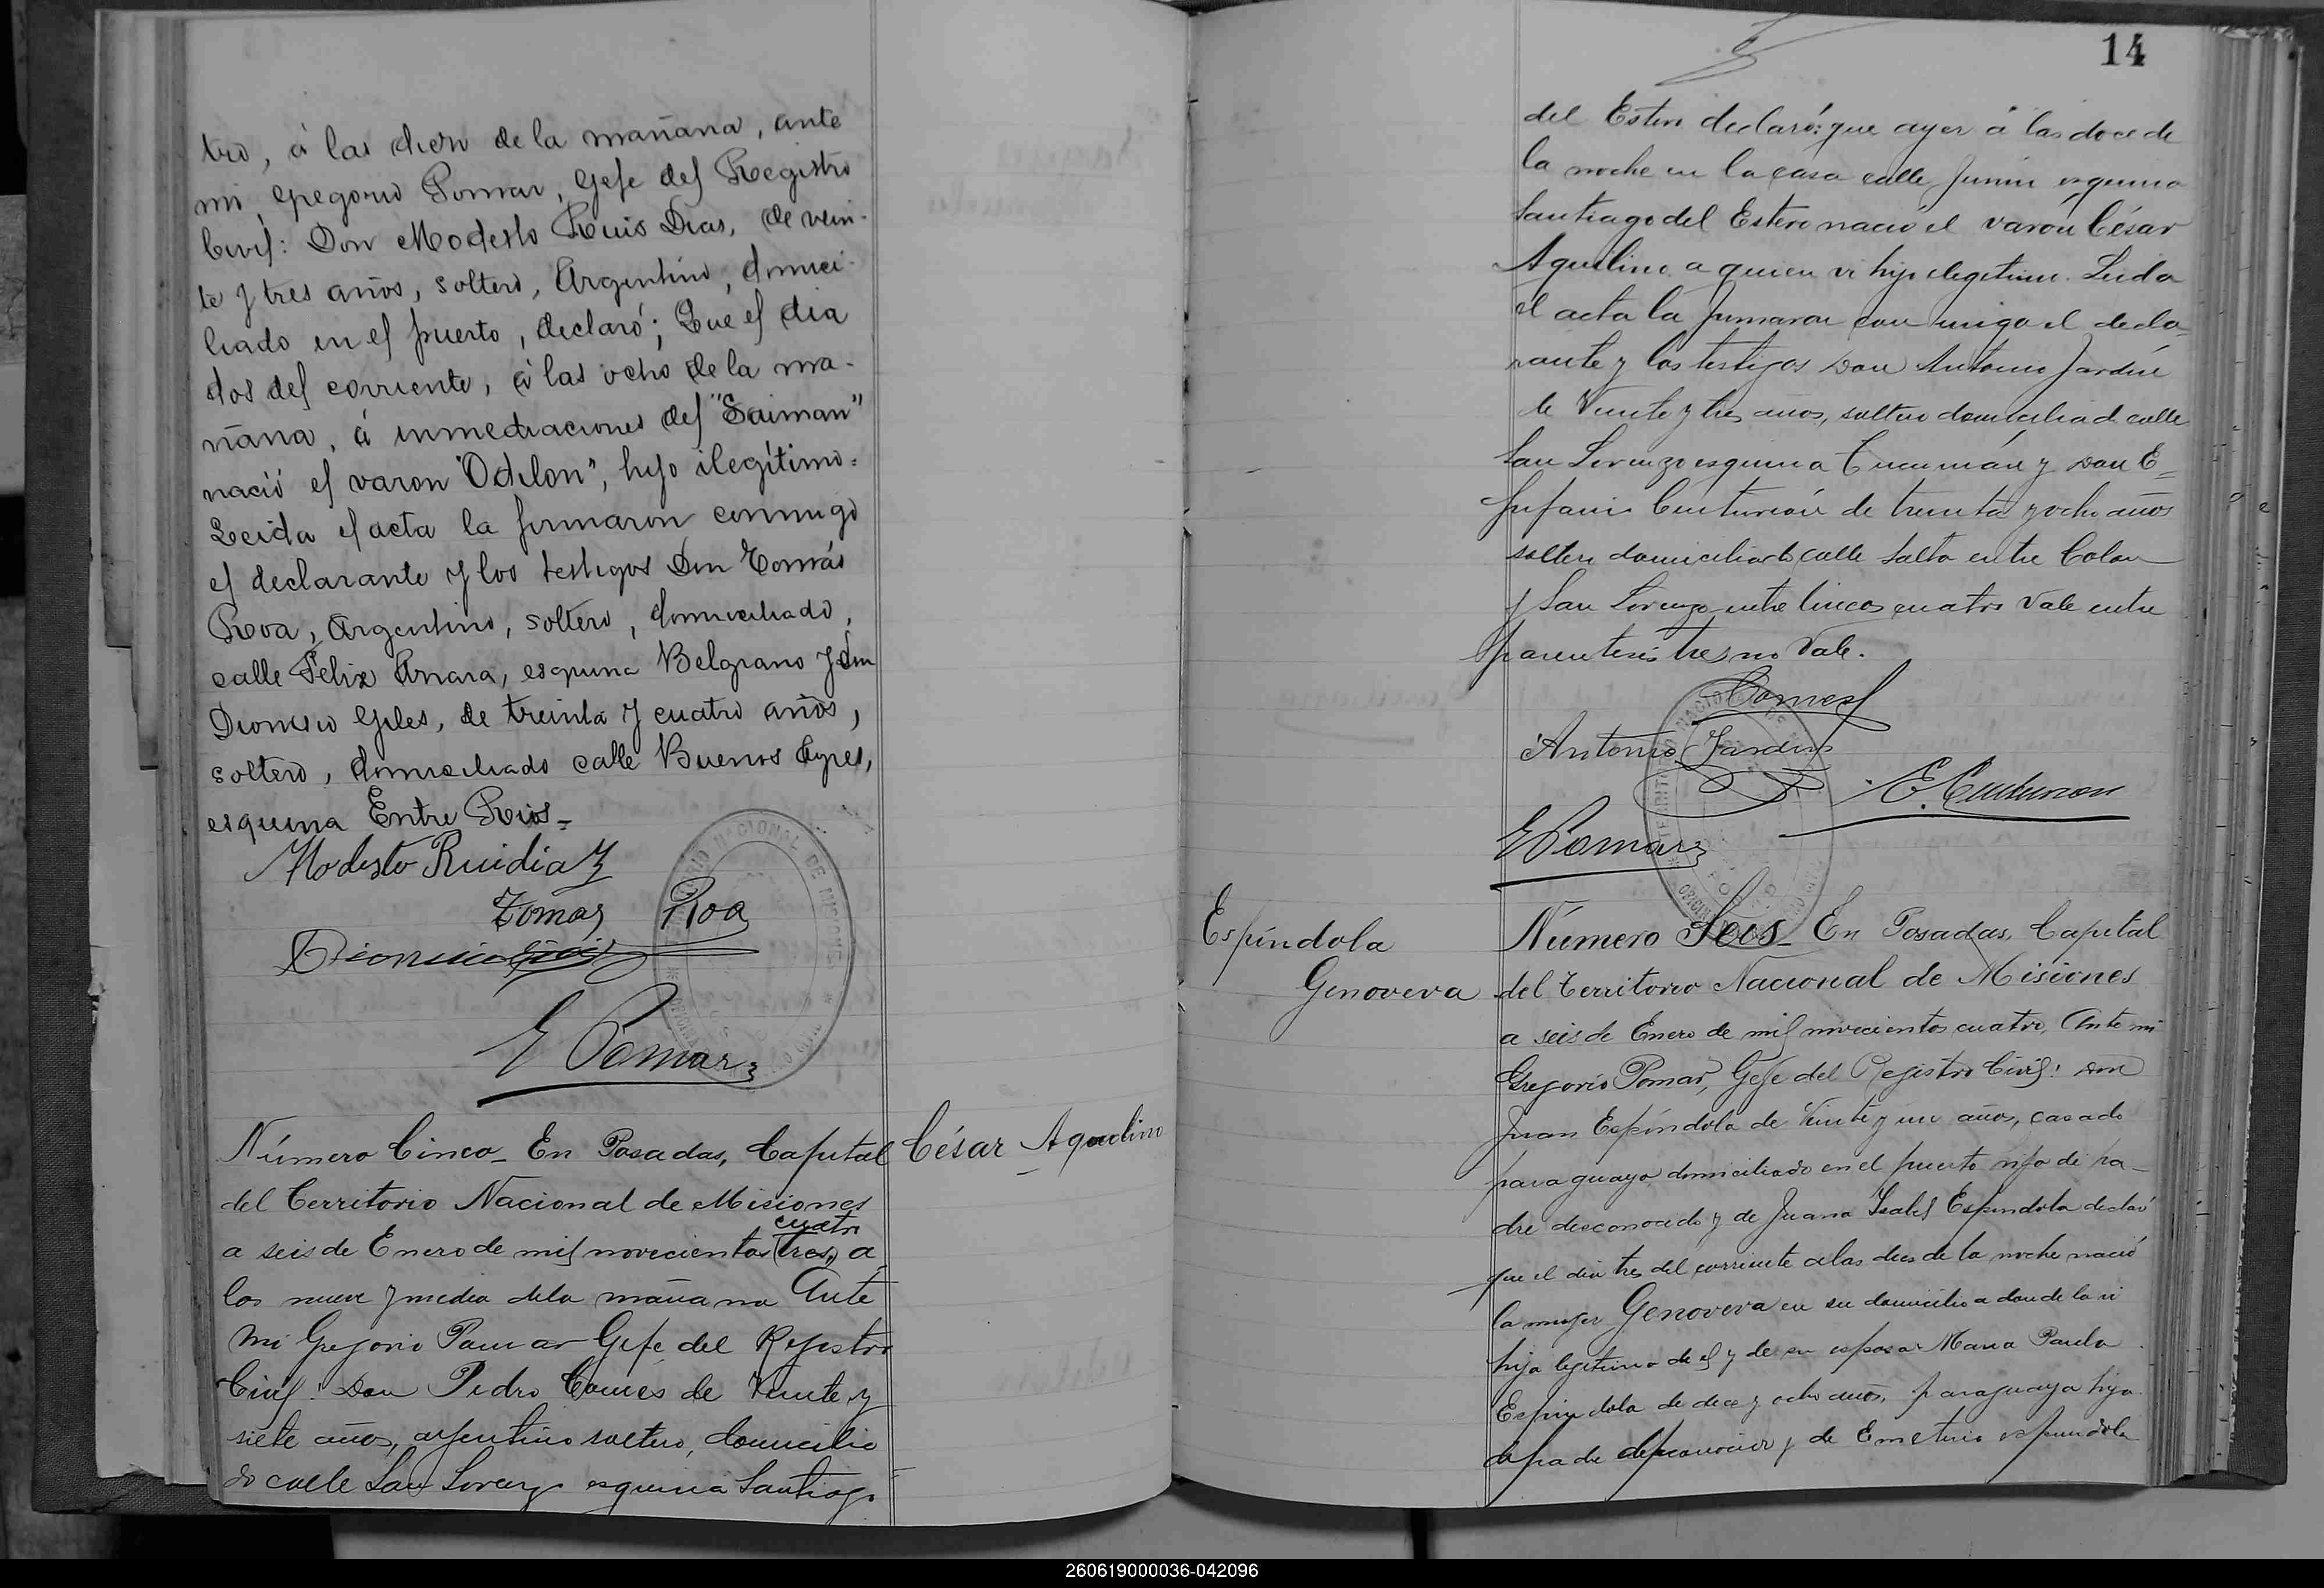 tro, á las diez de la mañana, ante
mi, Gregorio Pomar, Gefe del Registro
Civil: Don Modesto Ruis Dias, de vein-
te y tres años, soltero, Argentino, domici-
liado en el puerto, declaró; Que el dia
dos del corriente, á las ocho de la ma-
ñana, á inmediaciones del "Saiman"
nació el varon "Odilon", hijo ilegítimo.
Leida el acta la firmaron conmigo
el declarante y los testigos Don Tomás
Roa, Argentino, soltero, domiciliado,
calle Felix Azara, esquina Belgrano y Don
Dionisio Giles, de treinta y cuatro años,
soltero, domiciliado calle Buenos Ayres,
esquina Entre Rios=
Modesto Ruidiaz
Tomas Roa
Dionicio
G Pomar
Número Cinco_ En Posadas, Capital
César Aquilino
del Territorio Nacional de Misiones
cuatro
a seis de Enero de mil novecientos (tres,) a
las nueve y media dela mañana Ante
mi Gregorio Pomar Gefe del Rejistro
Civil: Don Pedro Comes de Veinte y
siete años, arjentino soltero, domicilia
do calle San Lorenzo esquina Santiago
14
del Estero declaró: que ayer á las doce de
la noche en la casa calle Junin esquina
Santiago del Estero nació el varón César
Aquilino a quien vi hijo ilegitimo. Leida
el acta la firmaron con migo el decla
rante y los testigos Don Antonio Jardin
de Veinte y tres años, soltero domiciliado calle
San Lorenzo esquina Tucumán y Don E=
pifanio Centurión de treinta y ocho años
soltero domiciliado calle Salta entre Colon
y San Lorenzo entre lineas cuatro Vale entre
parentesis tres no Vale.
Comes
Antonio Jardin
E. Centurion
G Pomar
Espíndola
Genoveva
Número Seis_ En Posadas, Capital
del Territorio Nacional de Misiones
a seis de Enero de mil novecientos cuatro, Ante mi
Gregorio Pomar, Gefe del Registro Civil: Don
Juan Espíndola de Veinte y un años, casado
paraguayo domiciliado en el puerto hijo de pa-
dre desconocido y de Juana Isabel Espindola declaró
que el dia tres del corriente alas dies de la noche nació
la mujer Genoveva en su domicilio a donde la vi
hija legitima de el y de su esposa Maria Paula
Espindola de dies y ocho años, paraguaya hija
de padre desconocido y de Emeteria espindola
260619000036-042096